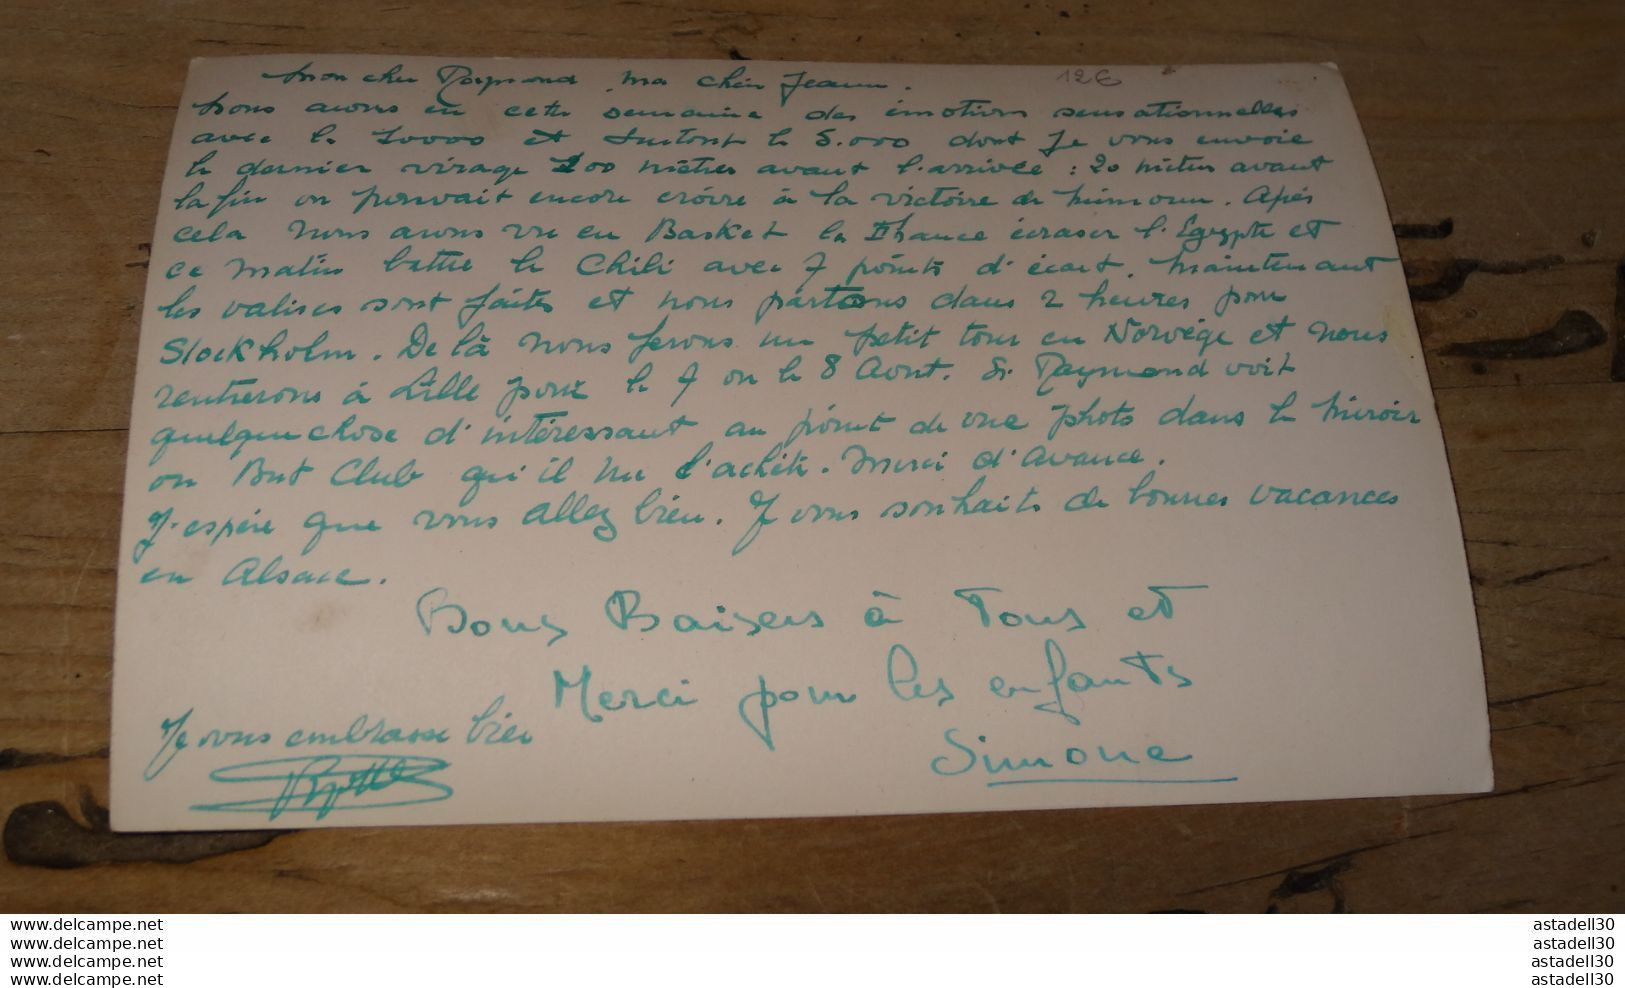 Mon cher Raymond, ma chère Jeanne.
12€
Nous avons eu cette semaine des émotions sensationnelles
avec le 10000 et surtout le 5.000 dont je vous envoie
le dernier virage 200 mètres avant l'arrivée : 20 mètres avant
la fin on pouvait encore croire à la victoire de Mimoun. Après
cela nous avons vu en Basket la France écraser l'Egypte et
ce matin battre le Chili avec 7 points d'écart. Maintenant
les valises sont faites et nous partons dans 2 heures pour
Stockholm. De là nous ferons un petit tour en Norvège et nous
rentrerons à Lille pour le 7 ou le 8 Aout. Si Raymond voit
quelque chose d'intéressant au point de vue photo dans le Miroir
ou But Club qu'il me l'achète. Merci d'Avance.
J'espère que vous allez bien. Je vous souhaite de bonnes vacances
en Alsace.
Bons Baisers à Tous et
Merci pour les enfants
Simone
Je vous embrasse bien
www.delcampe.net astadell30
www.delcampe.net astadell30
www.delcampe.net astadell30
www.delcampe.net astadell30